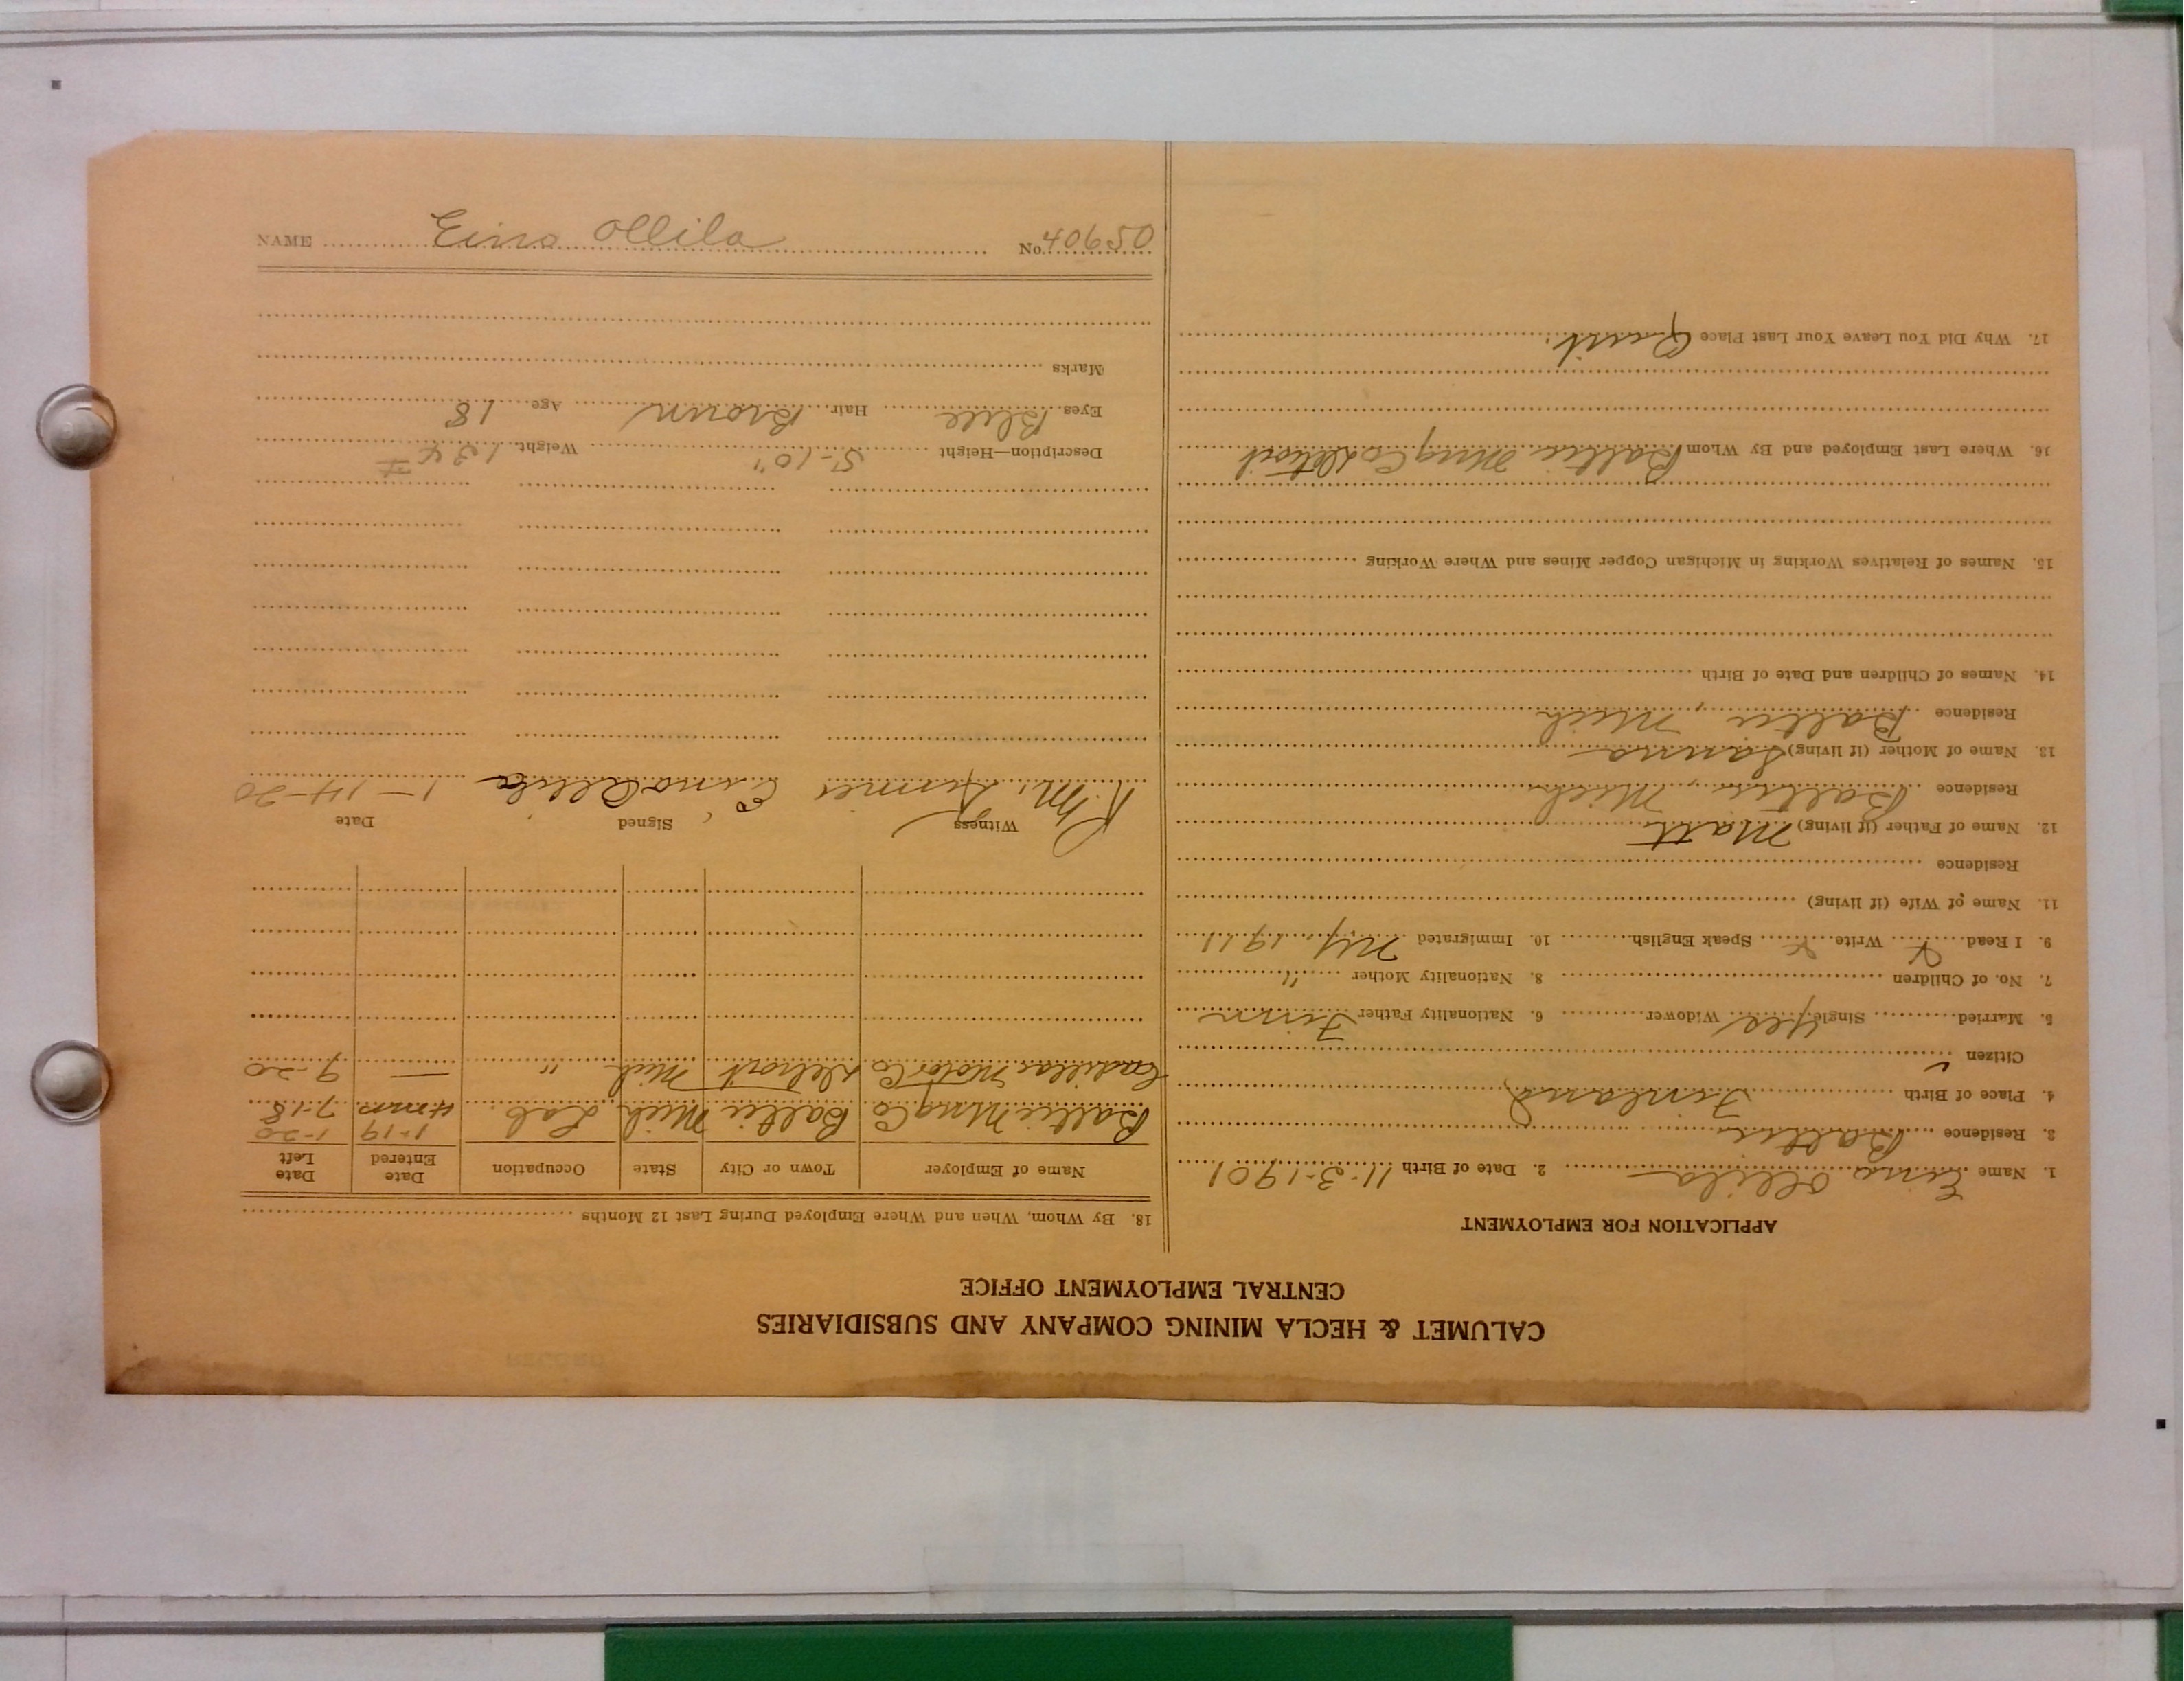 CALUMET & HECLA MINING COMPANY AND SUBSIDIARIES
CENTRAL EMPLOYMENT OFFICE
APPLICATION FOR EMPLOYMENT
1. Name Eino Ollila 2. Date of Birth 11-3-1901
3. Residence Baltic
4. Place of Birth Finland
Citizen
5. Married Single Yes Widower 6. Nationality Father Finn
7. No. of Children 8. Nationality Mother "
9. I Read Write Speak English 10. Immigrated NY 1911
11. Name of Wife (if living)
Residence
12. Name of Father (if living) Matt
Residence Baltic, Mich
13. Name of Mother (if living)
Residence Baltic, Mich
14. Names of Children and Date of Birth
15. Names of Relatives Working in Michigan Copper Mines and Where Working
16. Where Last Employed and By Whom Baltic Mng Co Detroit
17. Why Did You Leave Your Last Place Quit.
18. By Whom, When and Where Employed During Last 12 Months
Name of Employer Town or City State Occupation Date Entered Date Left
1-19 1-20
Baltic Mng Co Baltic Mich Lab. 4 mn 7-18
Cadillac Motor Co Detroit Mich " — 9-20
Witness Signed Date
R. M. Eino Ollila 1-14-20
Description—Height 5-10" Weight 134 #
Eyes Blue Hair Brown Age 18
Marks
NAME Eino Ollila No. 40650